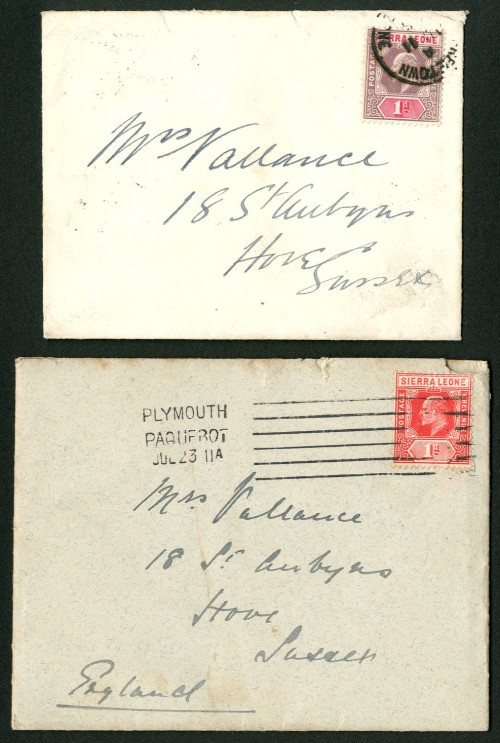 SIERRA LEONE
POSTAGE
1d
TOWN
Mrs Vallance
18 St Aubyns
Hove
Sussex
SIERRA LEONE
POSTAGE
REVENUE
1d
PLYMOUTH
PAQUEBOT
JUL 23 11A
Mrs Vallance
18 St. Aubyns
Hove
Sussex
England